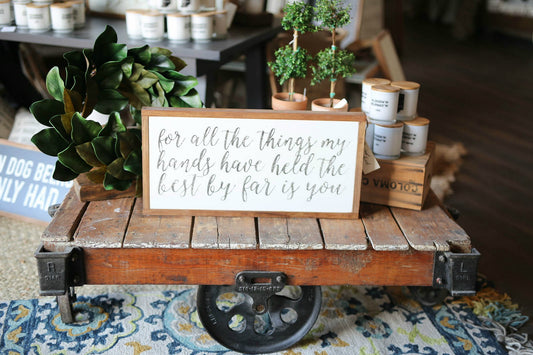 for all the things my
hands have held the
best by far is you
DOG BE
NLY HAR
COLOMA C